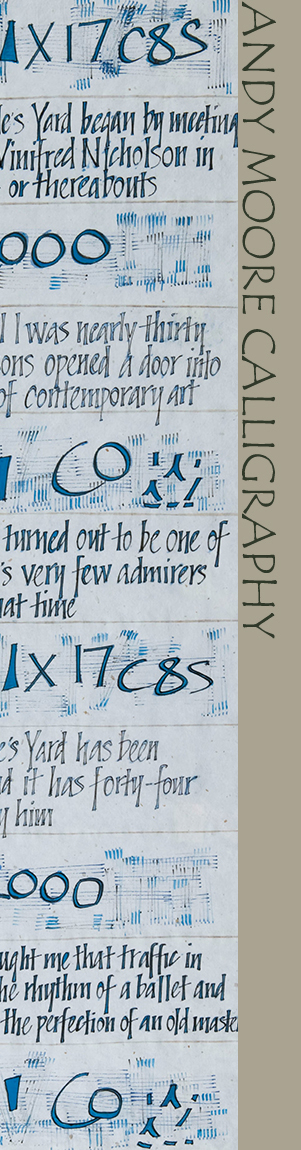 X17C8S
e's Yard began by meeting
Winifred Nicholson in
or thereabouts
000
I was nearly thirty
ons opened a door into
of contemporary art
CO
turned out to be one of
's very few admirers
hat time
1X17C8S
e's Yard has been
d it has forty-four
y him
000
ught me that traffic in
he rhythm of a ballet and
the perfection of an old maste
CO
ANDY MOORE CALLIGRAPHY